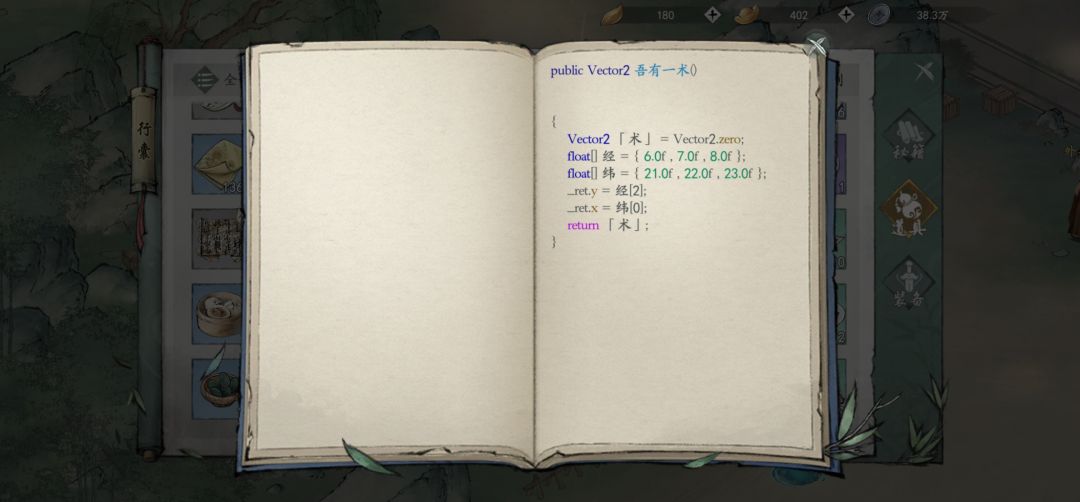 180
402
38.3万
全
行囊
136
public Vector2 吾有一术()
{
Vector2 「术」 = Vector2.zero;
float[] 经 = { 6.0f , 7.0f , 8.0f };
float[] 纬 = { 21.0f , 22.0f , 23.0f };
_ret.y = 经[2];
_ret.x = 纬[0];
return 「术」;
}
秘籍
道具
装备